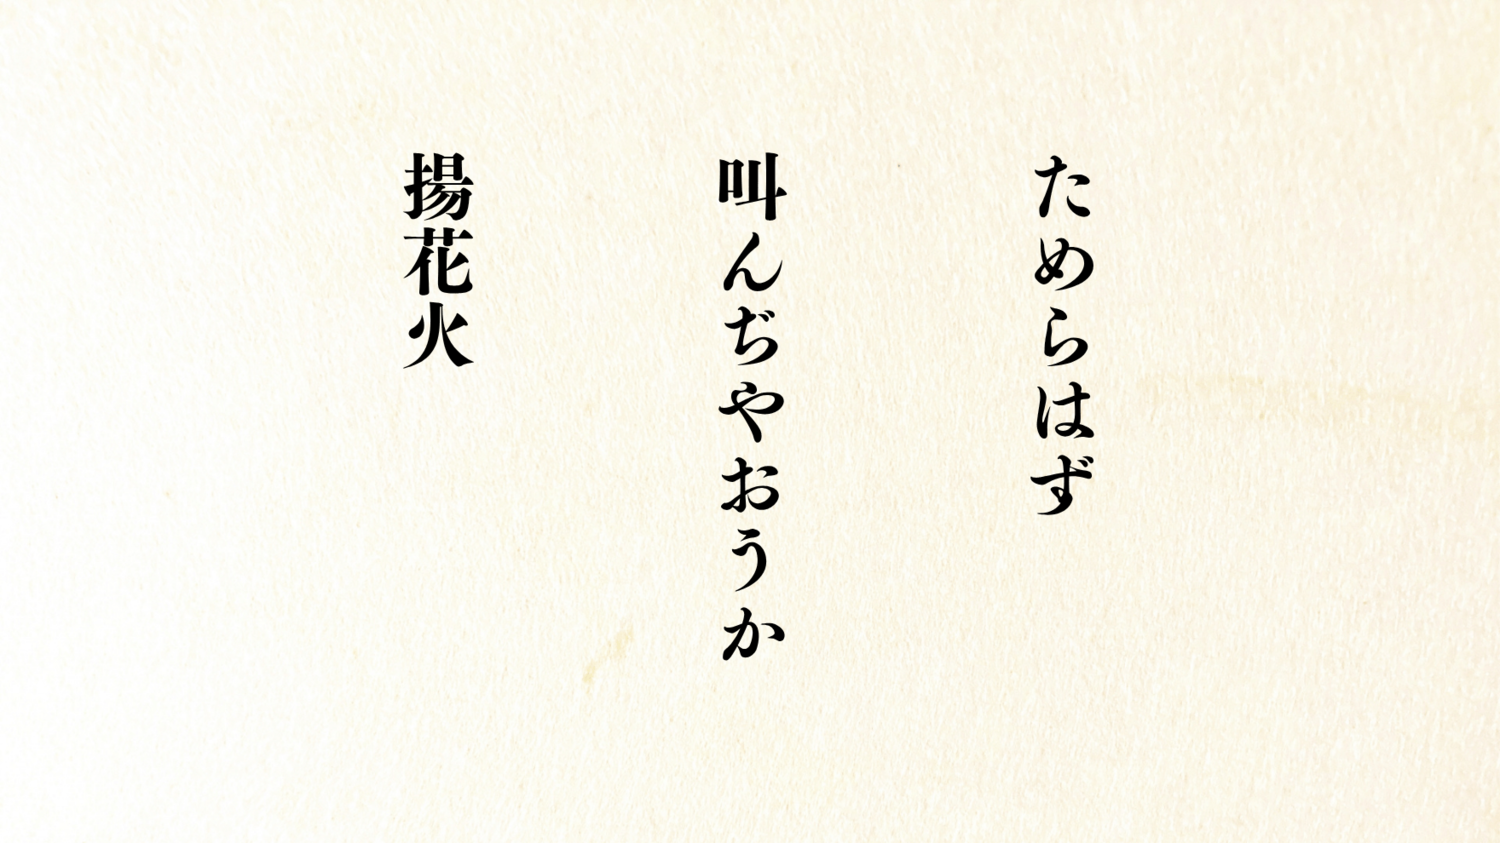 ためらはず
叫んぢやおうか
揚花火